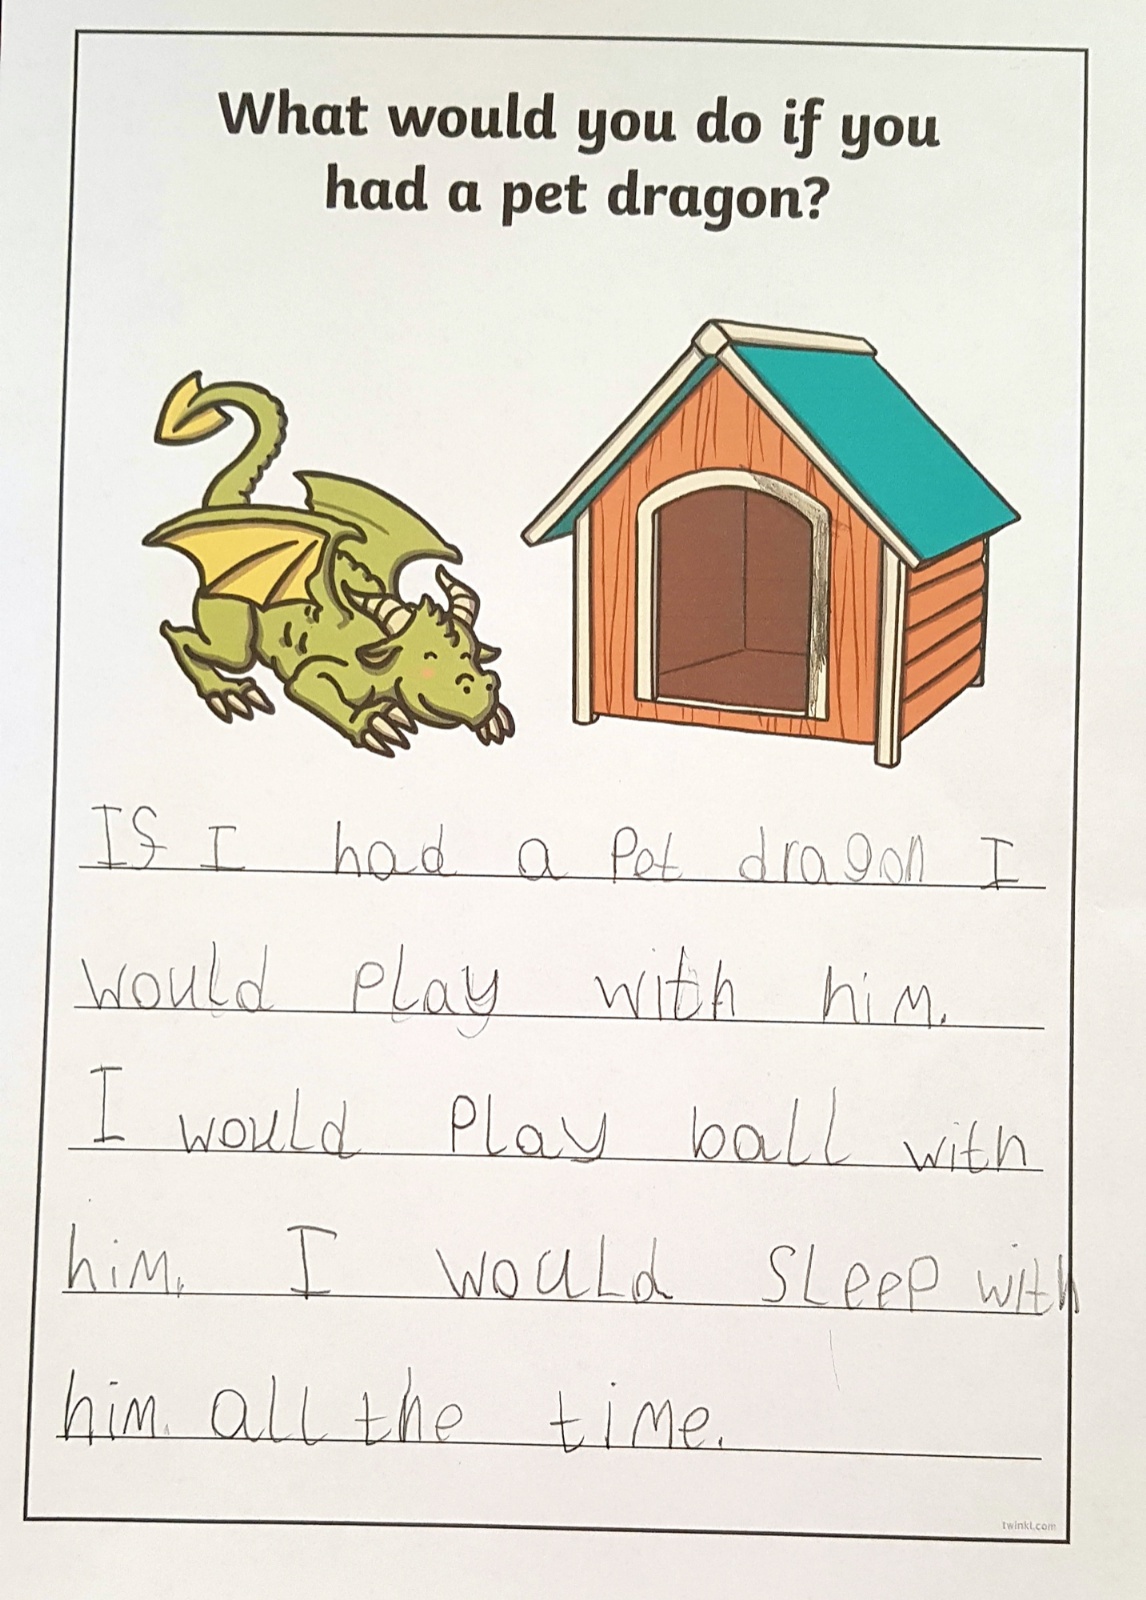 What would you do if you
had a pet dragon?
If I had a Pet dragon I
would play with him.
I would Play ball with
him. I would Sleep with
him. all the time.
twinkl.com